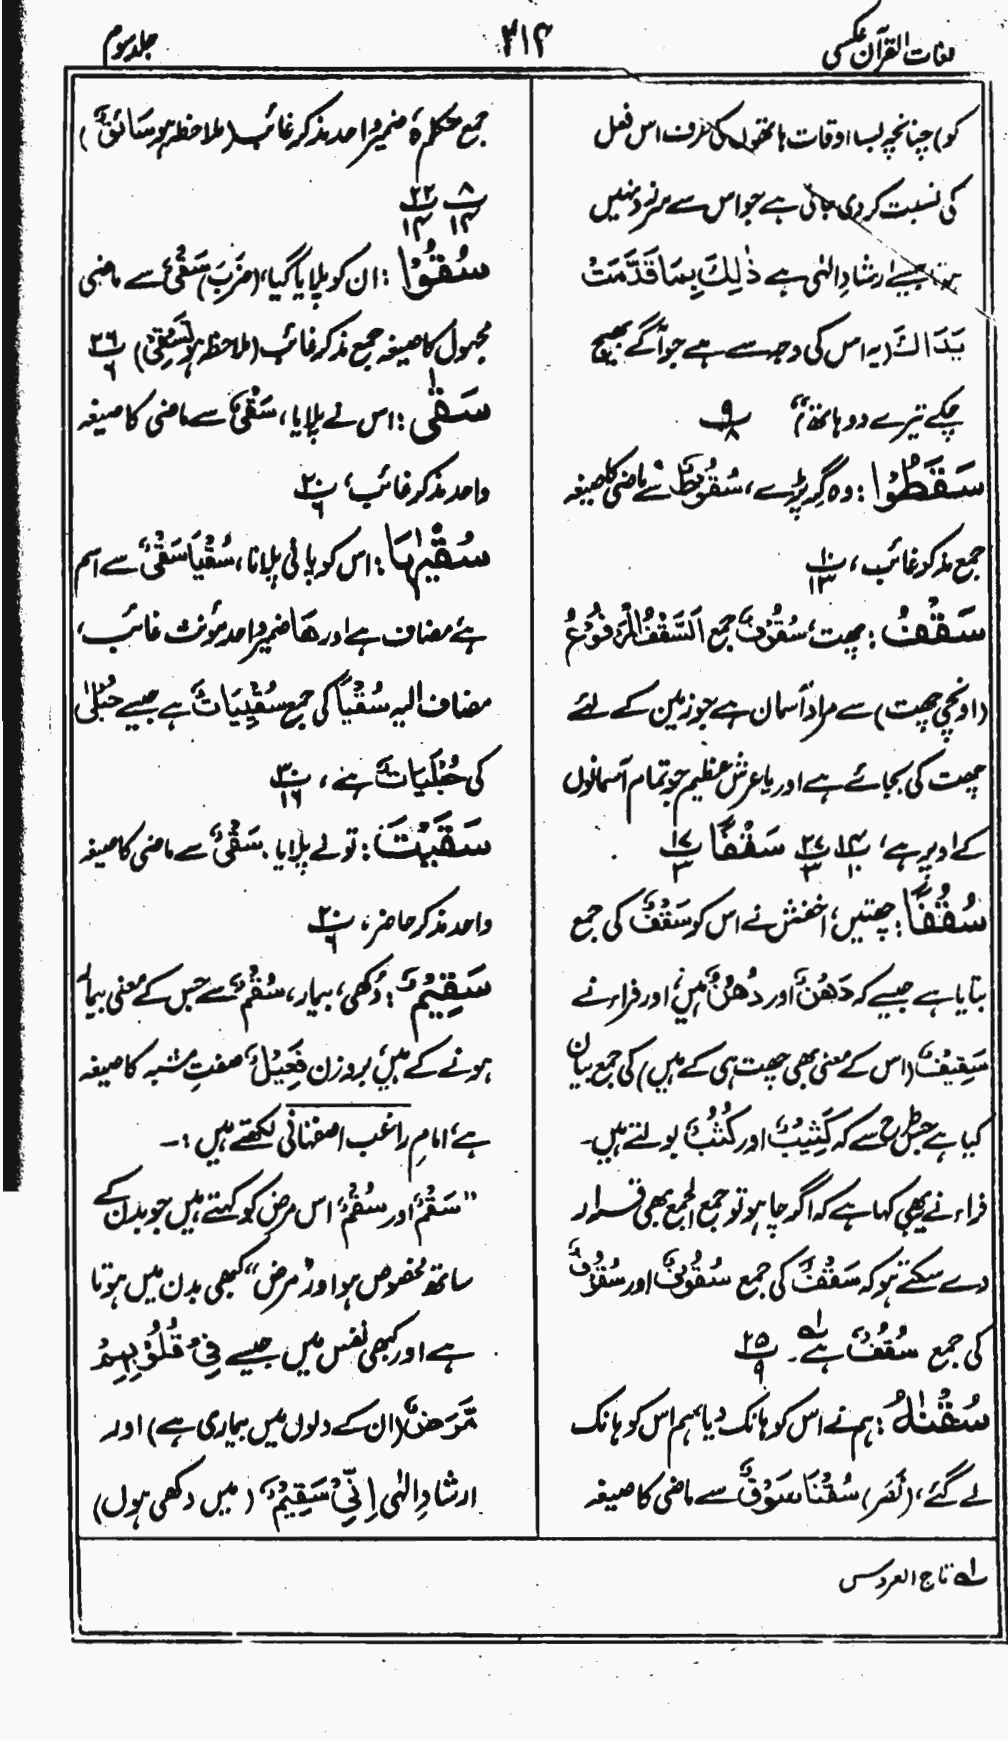 لغات القرآن عکسی
۳۱۴
جلد سوم
کو) چنانچہ بسا اوقات ہاتھوں کی طرف اس فعل
کی نسبت کر دی جاتی ہے جو اس سے سرزد نہیں
ہوتا جیسے ارشادِ الٰہی ہے ذٰلِكَ بِمَا قَدَّمَتْ
يَدَاكَ (یہ اس کی وجہ سے ہے جو آگے بھیج
چکے تیرے دو ہاتھ) ۹/۸
سَقَطُوْا : وہ گر پڑے، سُقُوْطٌ سے ماضی کا صیغہ
جمع مذکر غائب، ۱۰/۱۳
سَقْفٌ : چھت، سُقُوْفٌ جمع اَلسَّقْفُ الْمَرْفُوْعُ
(اونچی چھت) سے مراد آسمان ہے جو زمین کے لئے
چھت کی بجائے ہے اور یا عرش عظیم جو تمام آسمانوں
کے اوپر ہے، ۱۴/۱۰ ۲۷/۳ سَقْفًا ۱۷/۳
سُقُفًا : چھتیں، اخفش نے اس کو سَقْفٌ کی جمع
بتایا ہے جیسے کہ رَهْنٌ اور رُهُنٌ ہیں، اور فراء نے
سَقِيْفٌ (اس کے معنی بھی چھت ہی کے ہیں) کی جمع بیان
کیا ہے جس طرح سے کہ كَثِيْبٌ اور كُثُبٌ بولتے ہیں۔
فراء نے بھی کہا ہے کہ اگر چاہو تو جمع الجمع بھی قرار
دے سکتے ہو کہ سَقْفٌ کی جمع سُقُوْفٌ اور سُقُوْفٌ
کی جمع سُقُفٌ ہے۔ ۱ه ۲۵/۹
سُقْنٰهُ : ہم نے اس کو ہانک دیا، ہم اس کو ہانک
لے گئے، (نَصَرَ) سُقْنَا سَوْقٌ سے ماضی کا صیغہ
۱ه تاج العروس
جمع متکلم ہٗ ضمیر واحد مذکر غائب (ملاحظہ ہو سَائِقٌ)
۸/۱۴ ۲۲/۱۴
سُقُوْا : ان کو پلایا گیا، (ضَرَبَ) سَقْیٌ سے ماضی
مجہول کا صیغہ جمع مذکر غائب (ملاحظہ ہو نُسْقِیْ) ۲۶/۶
سَقٰی : اس نے پلایا، سَقْیٌ سے ماضی کا صیغہ
واحد مذکر غائب، ۲۰/۶
سُقْیٰہَا : اس کو پانی پلانا، سُقْیَا سَقْیٌ سے اسم
ہے مضاف ہے اور ھَا ضمیر واحد مؤنث غائب،
مضاف الیہ سُقْیَا کی جمع سُقْيَيَاتٌ ہے جیسے حُبْلٰی
کی حُبْلَيَاتٌ ہے، ۳۰/۱۶
سَقَيْتَ : تو نے پلایا۔ سَقْیٌ سے ماضی کا صیغہ
واحد مذکر حاضر، ۲۰/۶
سَقِيْمٌ : دُکھی، بیمار، سُقْمٌ سے جس کے معنی بیمار
ہونے کے ہیں، بروزن فَعِيْلٌ صفتِ مشبہ کا صیغہ
ہے، امامِ راغب اصفہانی لکھتے ہیں :۔
"سَقَمٌ اور سُقْمٌ اس مرض کو کہتے ہیں جو بدن کے
ساتھ مخصوص ہو اور "مرض" کبھی بدن میں ہوتا
ہے اور کبھی نفس میں جیسے فِیْ قُلُوْبِہِمْ
مَّرَضٌ (ان کے دلوں میں بیماری ہے) اور
ارشادِ الٰہی اِنِّیْ سَقِيْمٌ (میں دکھی ہوں)